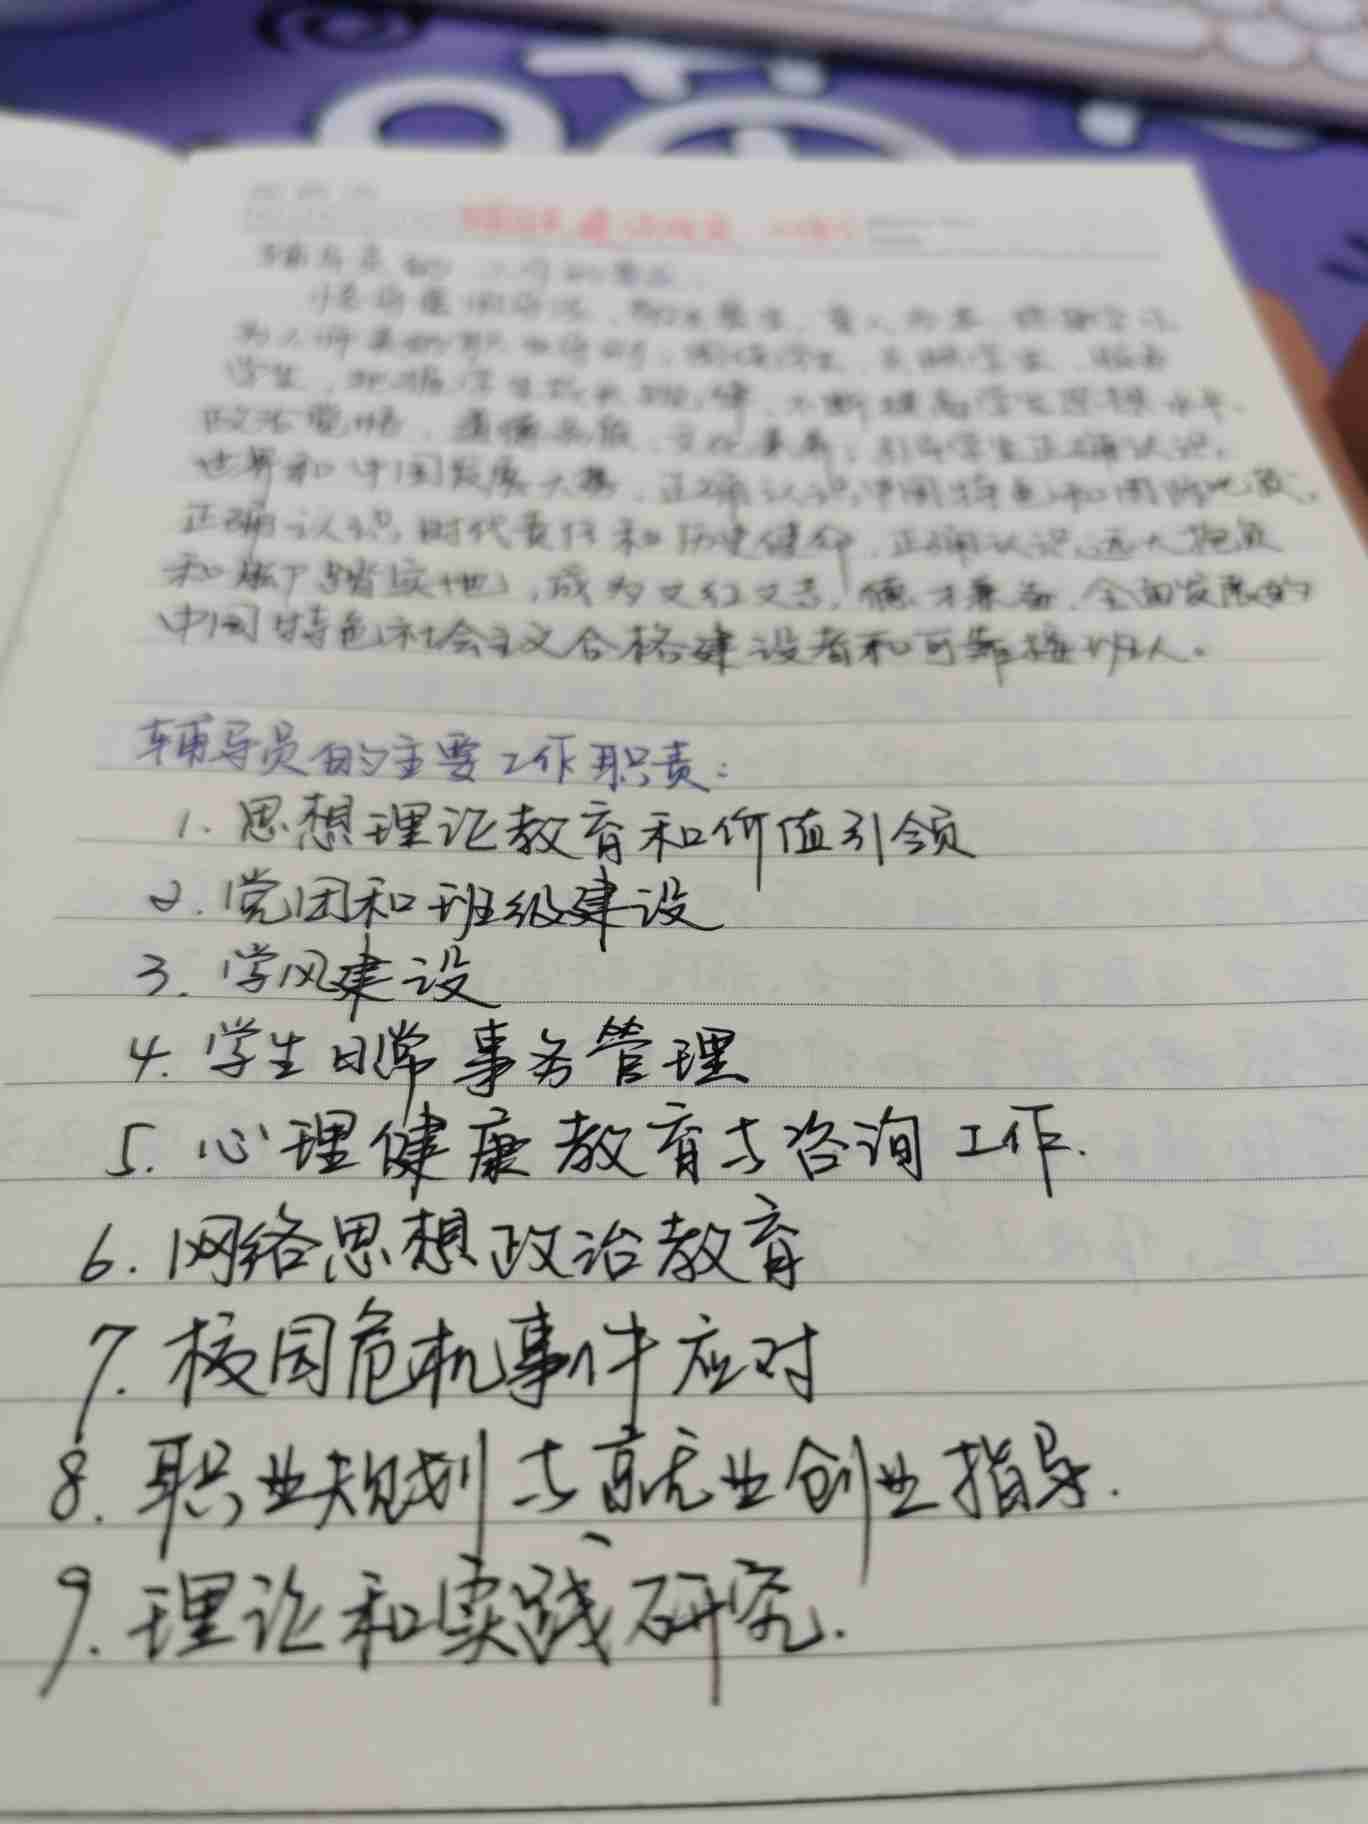 辅导员的工作的要求
恪守爱国守法、敬业爱生、育人为本、终身学习、
为人师表的职业守则；围绕学生、关照学生、服务
学生，把握学生成长规律，不断提高学生思想水平、
政治觉悟、道德品质、文化素养；引导学生正确认识
世界和中国发展大势、正确认识中国特色和国际比较、
正确认识时代责任和历史使命、正确认识远大抱负
和脚踏实地，成为又红又专、德才兼备、全面发展的
中国特色社会主义合格建设者和可靠接班人。
辅导员的主要工作职责：
1. 思想理论教育和价值引领
2. 党团和班级建设
3. 学风建设
4. 学生日常事务管理
5. 心理健康教育与咨询工作.
6. 网络思想政治教育
7. 校园危机事件应对
8. 职业规划与就业创业指导.
9. 理论和实践研究.